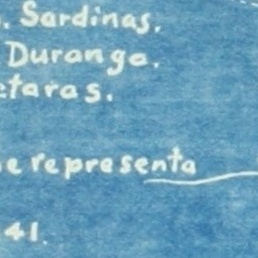 . Sardinas.
Durango.
taras.
e representa
41.